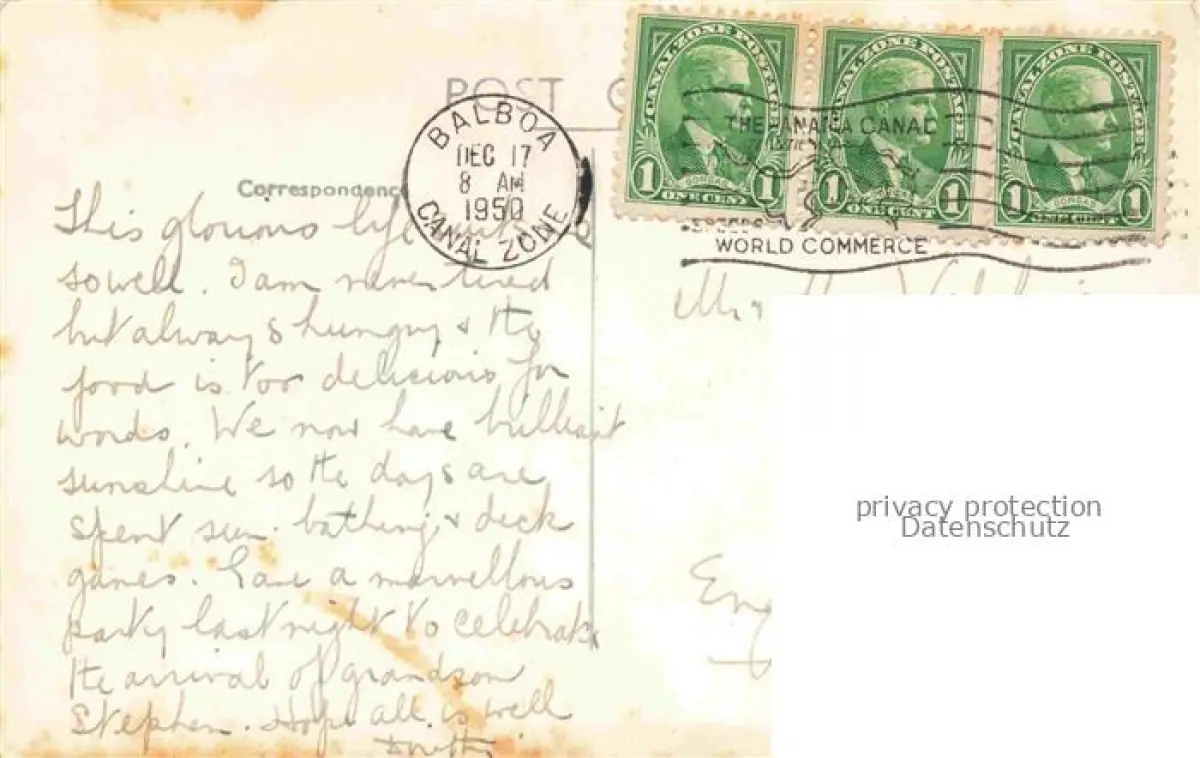 POST C
Correspondence
BALBOA
DEC 17
8 AM
1950
CANAL ZONE
CANAL ZONE POSTAGE
1 GORGAS 1
ONE CENT
CANAL ZONE POSTAGE
1 GORGAS 1
ONE CENT
CANAL ZONE POSTAGE
1 GORGAS 1
ONE CENT
THE PANAMA CANAL
SPEEDS
WORLD COMMERCE
This glorious life
so well. I am never tired
but always hungry & the
food is too delicious for
words. We now have brilliant
sunshine so the days are
spent sun bathing & deck
games. Gave a marvellous
party last night to celebrate
the arrival of grandson
Stephen. Hope all is well
Eng
privacy protection
Datenschutz